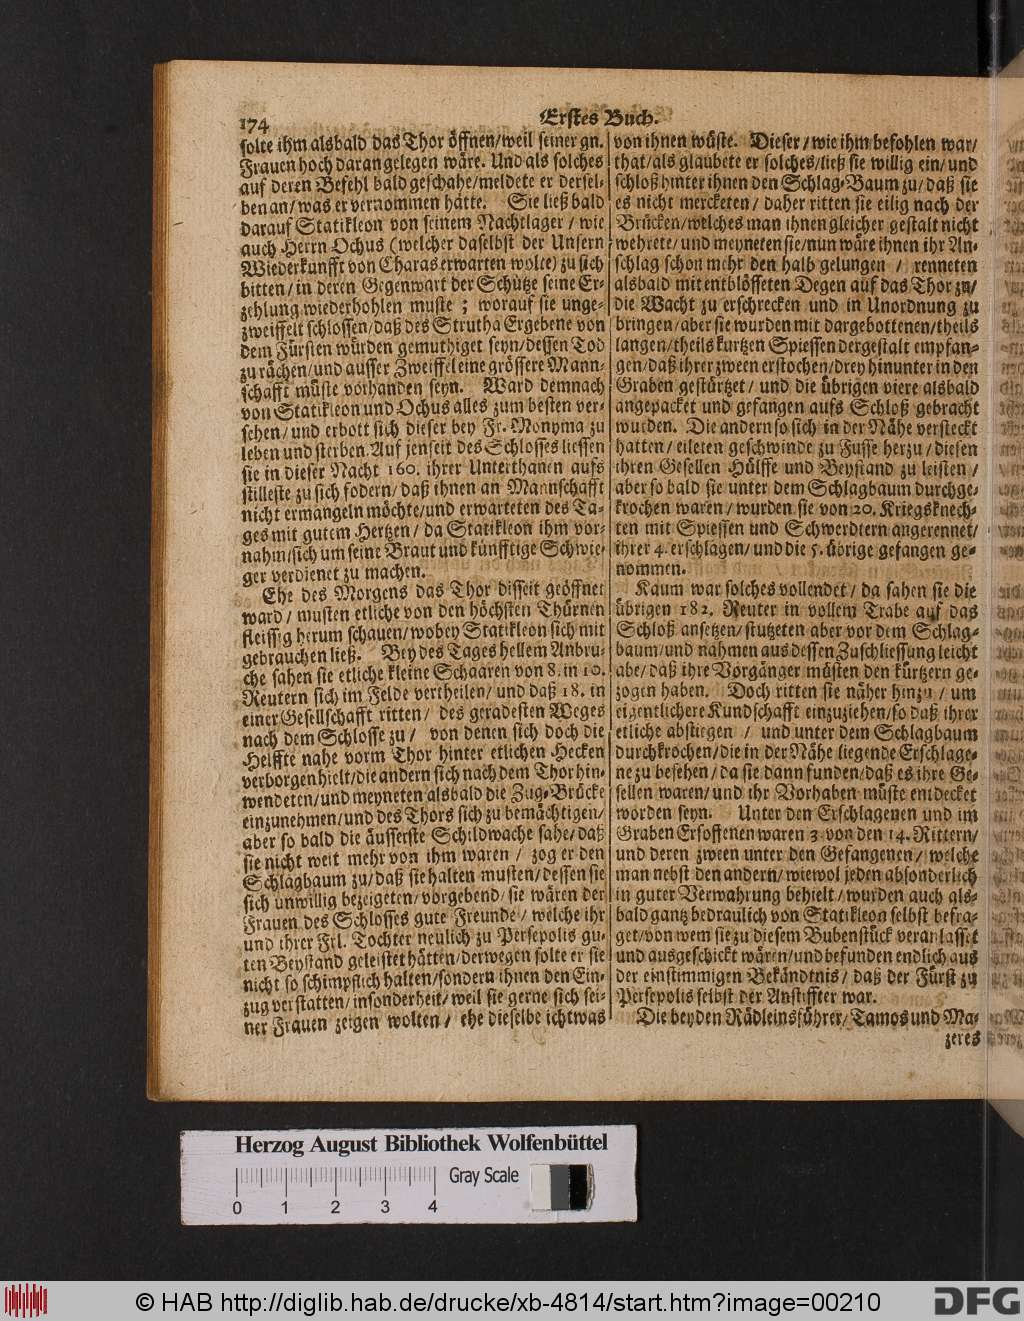 174
Erstes Buch.
solte ihm alsbald das Thor öffnen/weil seiner gn.
Frauen hoch daran gelegen wäre. Und als solches
auf deren Befehl bald geschahe/meldete er dersel-
ben an/was er vernommen hätte. Sie ließ bald
darauf Statikleon von seinem Nachtlager / wie
auch Herrn Ochus (welcher daselbst der Unsern
Wiederkunfft von Charas erwarten wolte) zu sich
bitten/in deren Gegenwart der Schütze seine Er-
zehlung wiederhohlen muste ; worauf sie unge-
zweiffelt schlossen/daß des Strutha Ergebene von
dem Fürsten würden gemuthiget seyn/dessen Tod
zu rächen/und ausser Zweiffel eine grössere Mann-
schafft müste vorhanden seyn. Ward demnach
von Statikleon und Ochus alles zum besten ver-
sehen/und erbott sich dieser bey Fr. Monyma zu
leben und sterben. Auf jenseit des Schlosses liessen
sie in dieser Nacht 160. ihrer Unterthanen aufs
stilleste zu sich fodern/daß ihnen an Mannschafft
nicht ermangeln möchte/und erwarteten des Ta-
ges mit gutem Hertzen/da Statikleon ihm vor-
nahm/sich um seine Braut und künfftige Schwie-
ger verdienet zu machen.
Ehe des Morgens das Thor disseit geöffnet
ward/ musten etliche von den höchsten Thürnen
fleissig herum schauen/wobey Statikleon sich mit
gebrauchen ließ. Bey des Tages hellem Anbru-
che sahen sie etliche kleine Schaaren von 8. in 10.
Reutern sich im Felde vertheilen/und daß 18. in
einer Gesellschafft ritten/ des geradesten Weges
nach dem Schlosse zu/ von denen sich doch die
Helffte nahe vorm Thor hinter etlichen Hecken
verborgen hielt/die andern sich nach dem Thor hin-
wendeten/und meyneten alsbald die Zug-Brücke
einzunehmen/und des Thors sich zu bemächtigen/
aber so bald die äusserste Schildwache sahe/daß
sie nicht weit mehr von ihm waren / zog er den
Schlagbaum zu/daß sie halten musten/dessen sie
sich unwillig bezeigeten/vorgebend/ sie wären der
Frauen des Schlosses gute Freunde/ welche ihr
und ihrer Frl. Tochter neulich zu Persepolis gu-
ten Beystand geleistet hätten/derwegen solte er sie
nicht so schimpflich halten/sondern ihnen den Ein-
zug verstatten/insonderheit/weil sie gerne sich sei-
ner Frauen zeigen wolten/ ehe dieselbe ichtwas
von ihnen wüste. Dieser/wie ihm befohlen war/
that/als glaubete er solches/ließ sie willig ein/und
schloß hinter ihnen den Schlag-Baum zu/daß sie
es nicht mercketen/ daher ritten sie eilig nach der
Brücken/welches man ihnen gleicher gestalt nicht
wehrete/und meyneten sie/nun wäre ihnen ihr An-
schlag schon mehr den halb gelungen / renneten
alsbald mit entblösseten Degen auf das Thor zu/
die Wacht zu erschrecken und in Unordnung zu
bringen/aber sie wurden mit dargebottenen/theils
langen/theils kurtzen Spiessen dergestalt empfan-
gen/daß ihrer zween erstochen/drey hinunter in den
Graben gestürtzet/ und die übrigen viere alsbald
angepacket und gefangen aufs Schloß gebracht
wurden. Die andern so sich in der Nähe versteckt
hatten/eileten geschwinde zu Fusse herzu/diesen
ihren Gesellen Hülffe und Beystand zu leisten/
aber so bald sie unter dem Schlagbaum durchge-
krochen waren/wurden sie von 20. Kriegsknech-
ten mit Spiessen und Schwerdtern angerennet/
ihrer 4. erschlagen/und die 5. übrige gefangen ge-
nommen.
Kaum war solches vollendet/ da sahen sie die
übrigen 182. Reuter in vollem Trabe auf das
Schloß ansetzen/stutzeten aber vor dem Schlag-
baum/und nahmen aus dessen Zuschliessung leicht
abe/daß ihre Vorgänger müsten den kürtzern ge-
zogen haben. Doch ritten sie näher hinzu/ um
eigentlichere Kundschafft einzuziehen/so daß ihrer
etliche abstiegen / und unter dem Schlagbaum
durchkrochen/die in der Nähe liegende Erschlage-
ne zu besehen/da sie dann funden/daß es ihre Ge-
sellen waren/und ihr Vorhaben müste entdecket
worden seyn. Unter den Erschlagenen und im
Graben Ersoffenen waren 3. von den 14. Rittern/
und deren zween unter den Gefangenen/ welche
man nebst den andern/wiewol jeden absonderlich
in guter Verwahrung behielt/wurden auch als-
bald gantz bedraulich von Statikleon selbst befra-
get/von wem sie zu diesem Bubenstück veranlasset
und ausgeschickt wären/und befunden endlich aus
der einstimmigen Bekändtnis/ daß der Fürst zu
Persepolis selbst der Anstiffter war.
Die beyden Rädleinsführer/Tamos und Ma-
zeres
Herzog August Bibliothek Wolfenbüttel
Gray Scale
0 1 2 3 4
© HAB http://diglib.hab.de/drucke/xb-4814/start.htm?image=00210
DFG